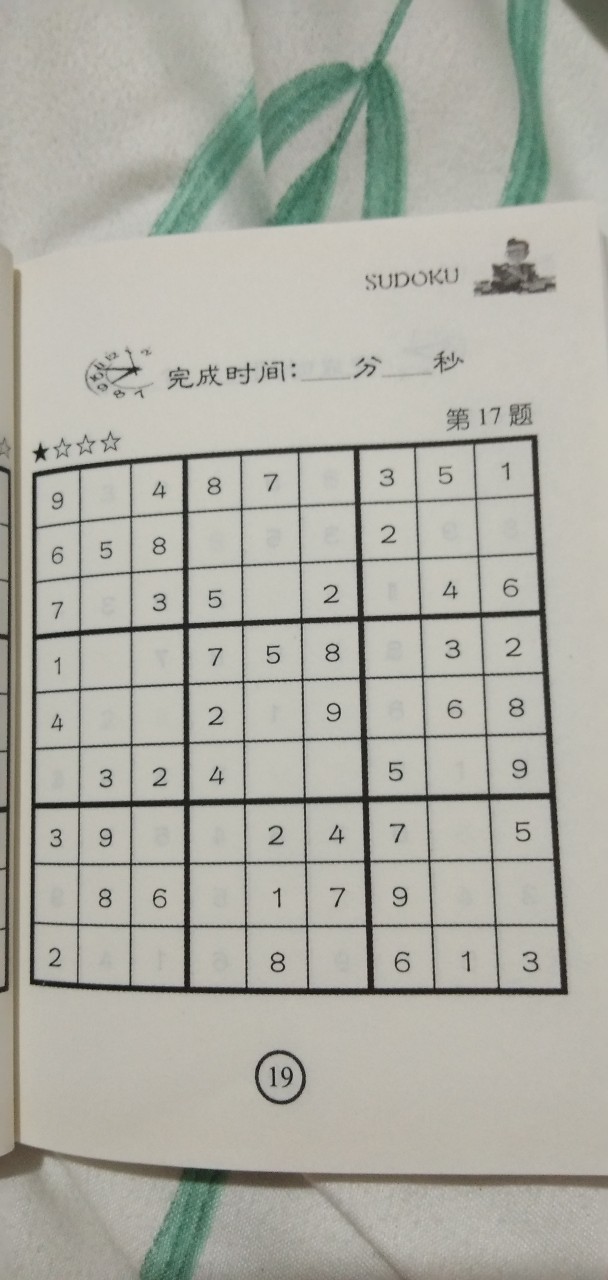 SUDOKU
完成时间:___分___秒
第17题
★☆☆☆
9 4 8 7 3 5 1
6 5 8 2
7 3 5 2 4 6
1 7 5 8 3 2
4 2 9 6 8
3 2 4 5 9
3 9 2 4 7 5
8 6 1 7 9
2 8 6 1 3
19